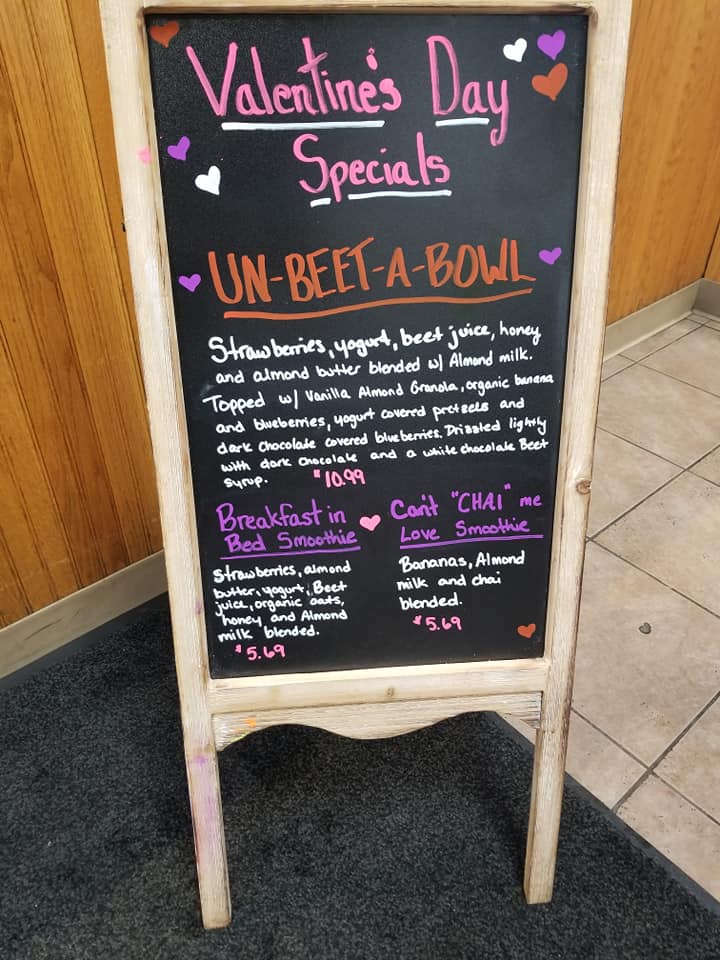 Valentine's Day
Specials
UN-BEET-A-BOWL
Strawberries, yogurt, beet juice, honey
and almond butter blended w/ Almond milk.
Topped w/ Vanilla Almond Granola, organic banana
and blueberries, yogurt covered pretzels and
dark chocolate covered blueberries. Drizzled lightly
with dark chocolate and a white chocolate Beet
syrup. $10.99
Breakfast in
Bed Smoothie
Strawberries, almond
butter, yogurt, Beet
juice, organic oats,
honey and Almond
milk blended.
$5.69
Can't "CHAI" me
Love Smoothie
Bananas, Almond
milk and chai
blended.
$5.69